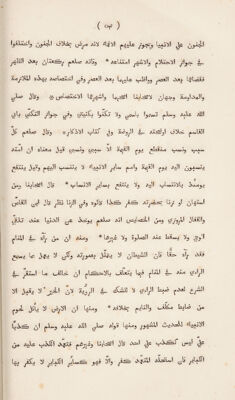 الجنون على الانبياء ويجوز عليهم الاغماء لانه مرض بخلاف الجنون واختلفوا
في جواز الاحتلام والاشهر امتناعه * وفاته صلعم ركعتان بعد الظهر
فقضاهما بعد العصر وواظب عليهما بعد العصر وفي اختصاصه بهذه الملازمة
والمداومة وجهان لاصحابنا اصحهما واشهرهما الاختصاص * وقال صلى
الله عليه وسلم تسموا باسمي ولا تكنوا بكنيتي وفي جواز التكني بابي
القاسم خلاف اوضحته في الروضة وفي كتاب الاذكار * وقال صلعم كل
سبب ونسب منقطع يوم القيمة الا سببي ونسبي قيل معناه ان امته
ينسبون اليه يوم القيمة وامم ساير الانبياء لا تنتسب اليهم وقيل ينتفع
يومئذ بالانتساب اليه ولا ينتفع بساير الانساب * وقال اصحابنا من
استهان او زنا بحضرته كفر كذا قالوه وفي الزنا نظر قال ابن القاص
والقفال المروزي ومن الخصايص انه صلعم يوخذ عن الدنيا عند تلقي
الوحي ولا يسقط عنه الصلوة ولا غيرها * ومنه ان من رآه في المنام
فقد رآه حقا فان الشيطان لا يتمثل بصورته ولكن لا يعمل بما يسمع
الرائي منه في المنام فيما يتعلق بالاحكام ان خالف ما استقر في
الشرع لعدم ضبط الرائي لا للشك في الروية لان الخبر لا يقبل الا
من ضابط مكلف والنايم بخلافه * ومنها ان الارض لا تأكل لحوم
الانبياء للحديث المشهور ومنها قوله صلى الله عليه وسلم ان كذبا
علي ليس ككذب على احد قال اصحابنا وغيرهم فتعمد الكذب عليه من
الكباير فان تعمده المتعمد كفر والا فهو كساير الكباير لا يكفر بها